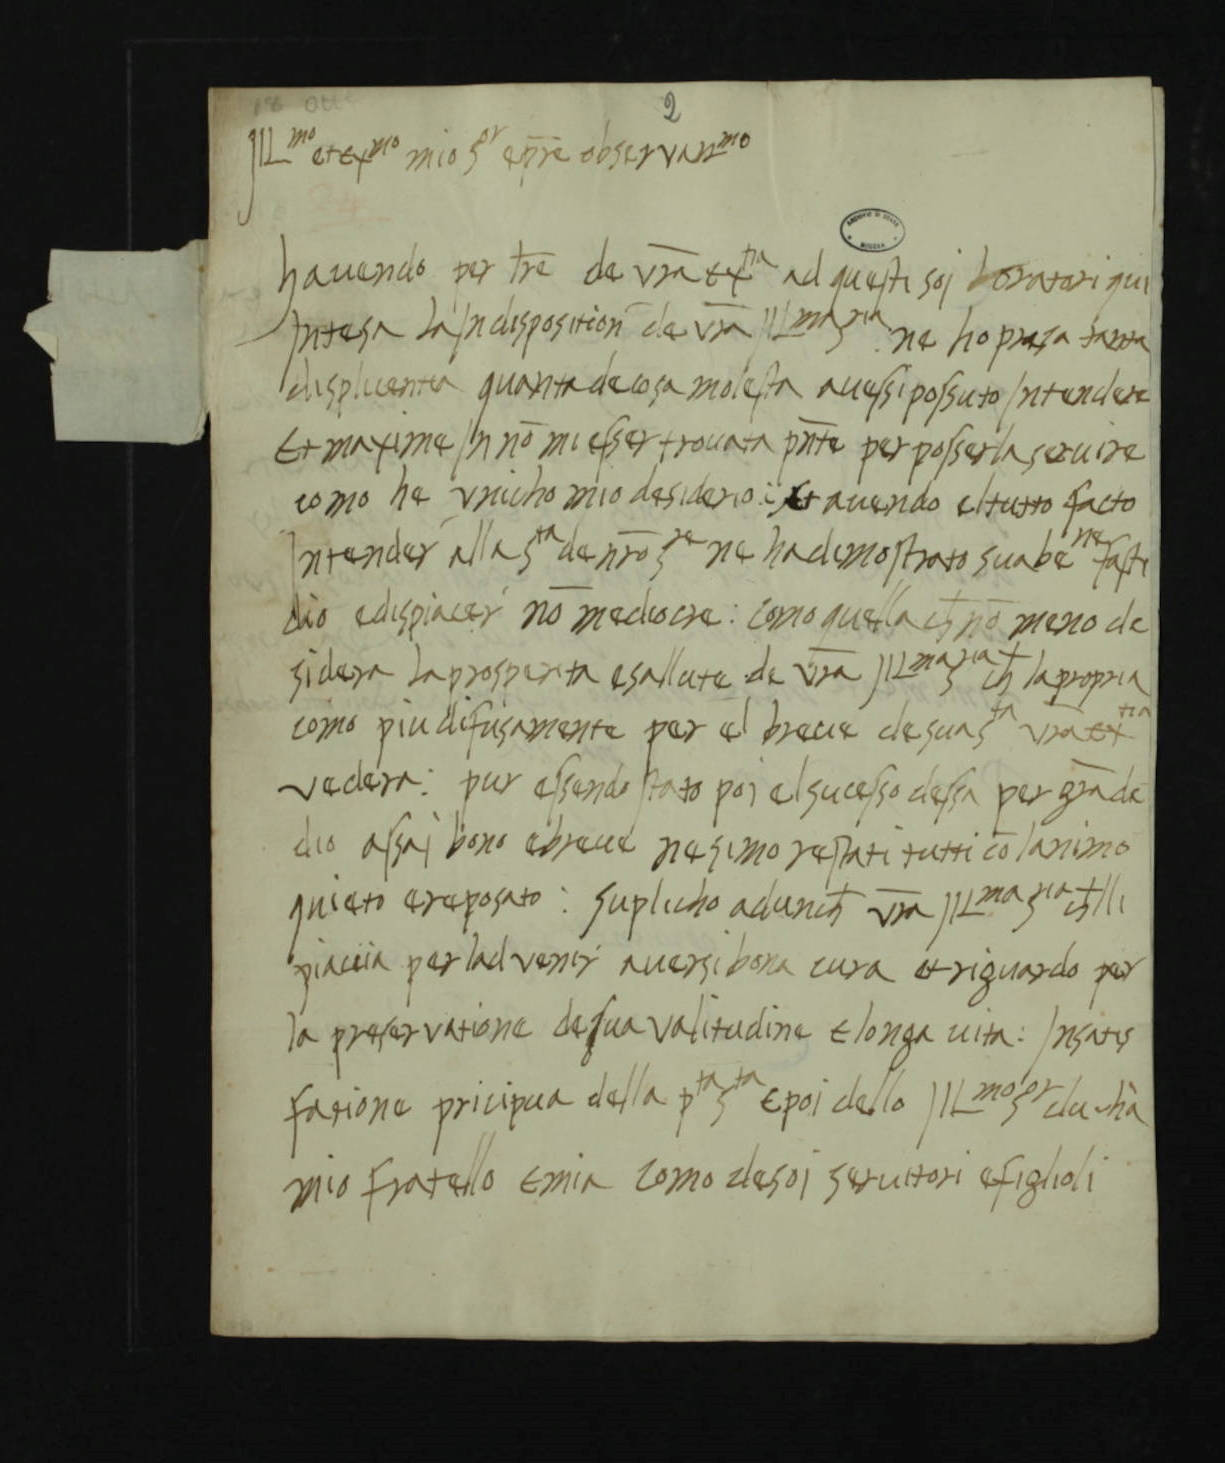 2
Ill^mo et ex^mo mio s^or e pre observan^mo
havendo per tre de vra ex^tia ad questi soi horatori qui
Intesa la Indisposition de vra Ill^ma s^ria ne ho presa tanta
displicentia quanta de cosa molesta avessi possuto Intendere
Et maxime In nō mi esser trovata pnte per posserla servire
como he unicho mio desiderio: Et avendo el tutto facto
Intender alla s^ta de nro s^re ne ha demostrato sua be^ne fasti
dio e dispiacer nō mediocre: como quella ch nō meno de
sidera la prosperita e sallute de vra Ill^ma s^ria ch la propria
como piu difusamente per el breve de sua s^ta vra ex^tia
vedera: pur essendo stato poi el sucesso dessa per gra de
dio assai bono e breve ne simo restati tutti cō lanimo
quieto e reposato: suplicho adunch vra Ill^ma s^ria ch lli
piaccia per lad venir aversi bona cura et riguardo per
la preservatione de sua valitudine e longa vita: In satis
fatione pricipua della p^ta s^ta e poi dello Ill^mo s^or ducha
mio fratello e mia como de soi servitori e figlioli
ARCHIVIO DI STATO
MODENA